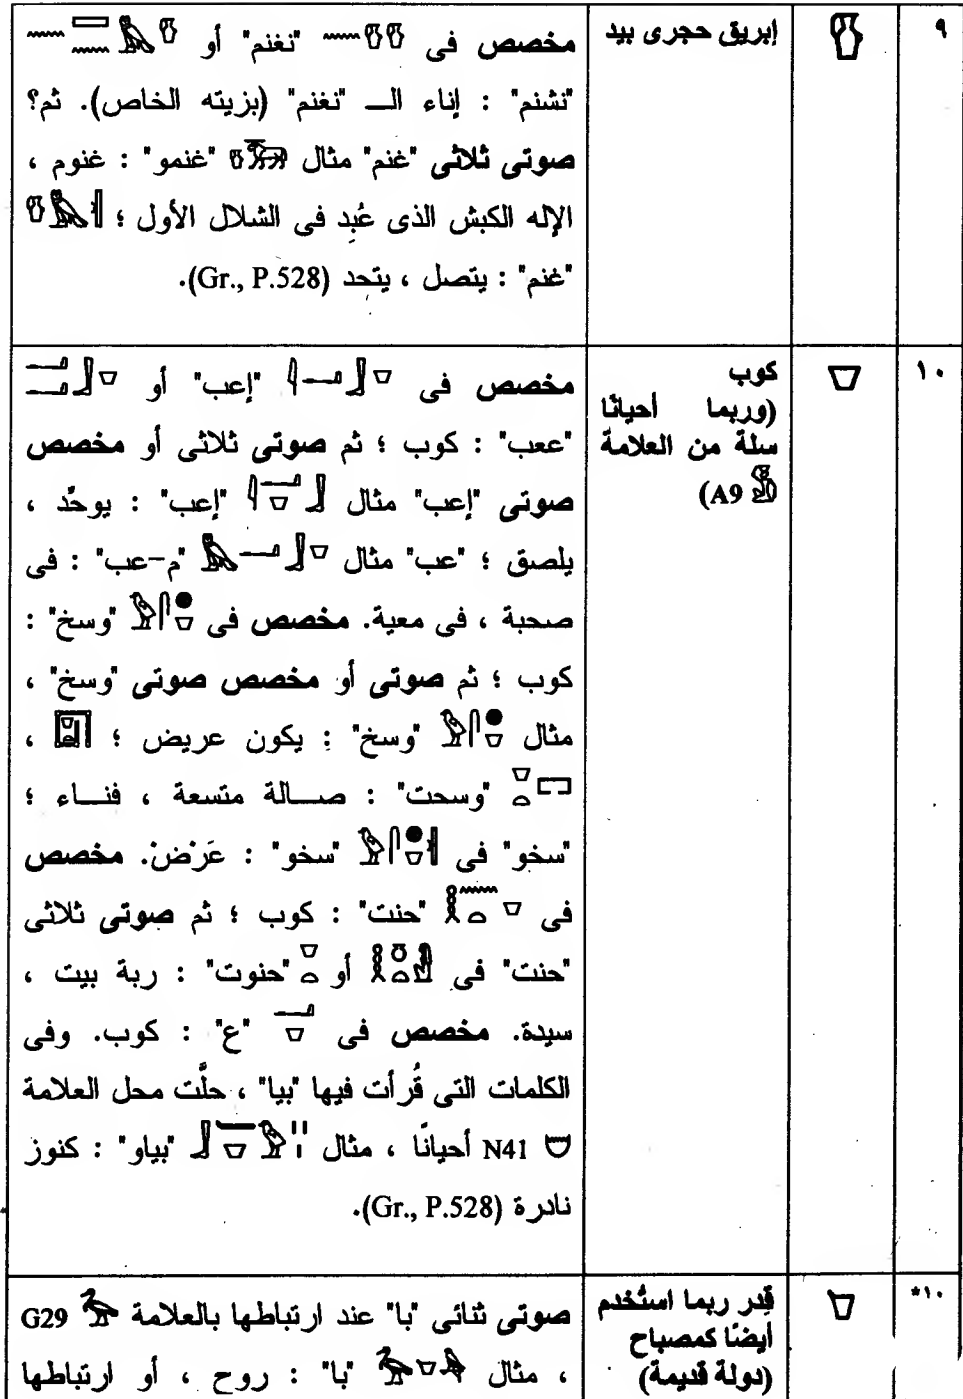 ٩
إبريق حجرى بيد
مخصص فى "نغنم" أو
"نشنم" : إناء الــ "نغنم" (بزيته الخاص). ثم؟
صوتى ثلاثى "غنم" مثال "غنمو" : غنوم ،
الإله الكبش الذى عُبِد فى الشلال الأول ؛
"غنم" : يتصل ، يتحد (Gr., P.528).
١٠
كوب
(وربما أحيانًا
سلة من العلامة
A9)
مخصص فى "إعب" أو
"ععب" : كوب ؛ ثم صوتى ثلاثى أو مخصص
صوتى "إعب" مثال "إعب" : يوحِّد ،
يلصق ؛ "عب" مثال "م-عب" : فى
صحبة ، فى معية. مخصص فى "وسخ" :
كوب ؛ ثم صوتى أو مخصص صوتى "وسخ" ،
مثال "وسخ" : يكون عريض ؛ ،
"وسحت" : صــالة متسعة ، فنــاء ؛
"سخو" فى "سخو" : عَرْضْ. مخصص
فى "حنت" : كوب ؛ ثم صوتى ثلاثى
"حنت" فى أو "حنوت" : ربة بيت ،
سيدة. مخصص فى "ع" : كوب. وفى
الكلمات التى قُرأت فيها "بيا" ، حلَّت محل العلامة
N41 أحيانًا ، مثال "بياو" : كنوز
نادرة (Gr., P.528).
١٠*
قِدر ربما استُخدم
أيضًا كمصباح
(دولة قديمة)
صوتى ثنائى "با" عند ارتباطها بالعلامة G29
، مثال "با" : روح ، أو ارتباطها